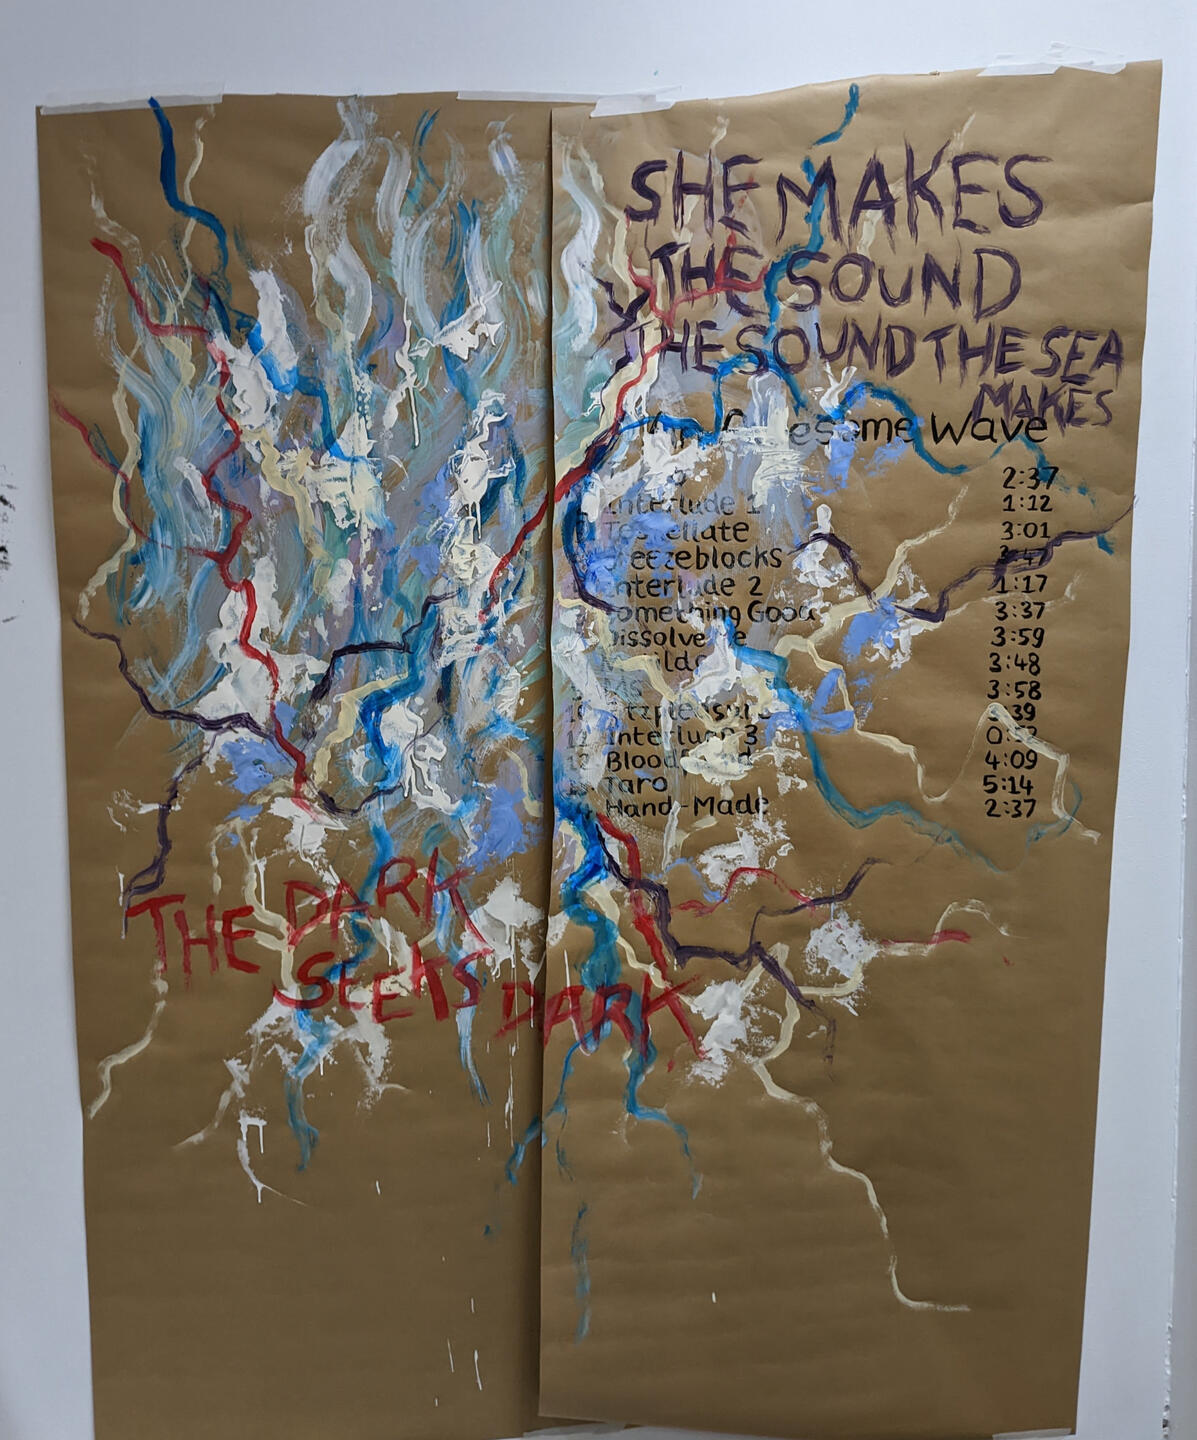 SHE MAKES
THE SOUND
THE SOUND THE SEA
MAKES
esome Wave
2:37
Interlude 1 1:12
Tessellate 3:01
Breezeblocks
Interlude 2 1:17
Something Good 3:37
Dissolve Me 3:59
Matilda 3:48
Ms 3:58
10. Fitzpleasure 3:39
11. Interlude 3 0:52
12. Bloodflood 4:09
Taro 5:14
Hand-Made 2:37
THE DARK
SEEKS DARK